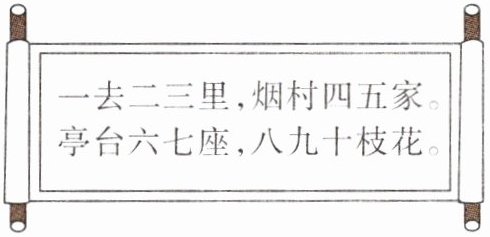 一去二三里,烟村四五家。
亭台六七座,八九十枝花。